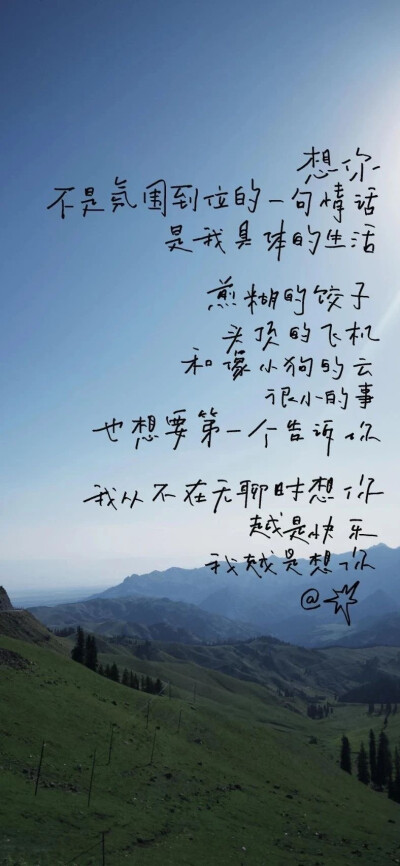 想你
不是氛围到位的一句情话
是我具体的生活
煎糊的饺子
头顶的飞机
和像小狗的云
很小的事
也想要第一个告诉你
我从不在无聊时想你
越是快乐
我越是想你
@